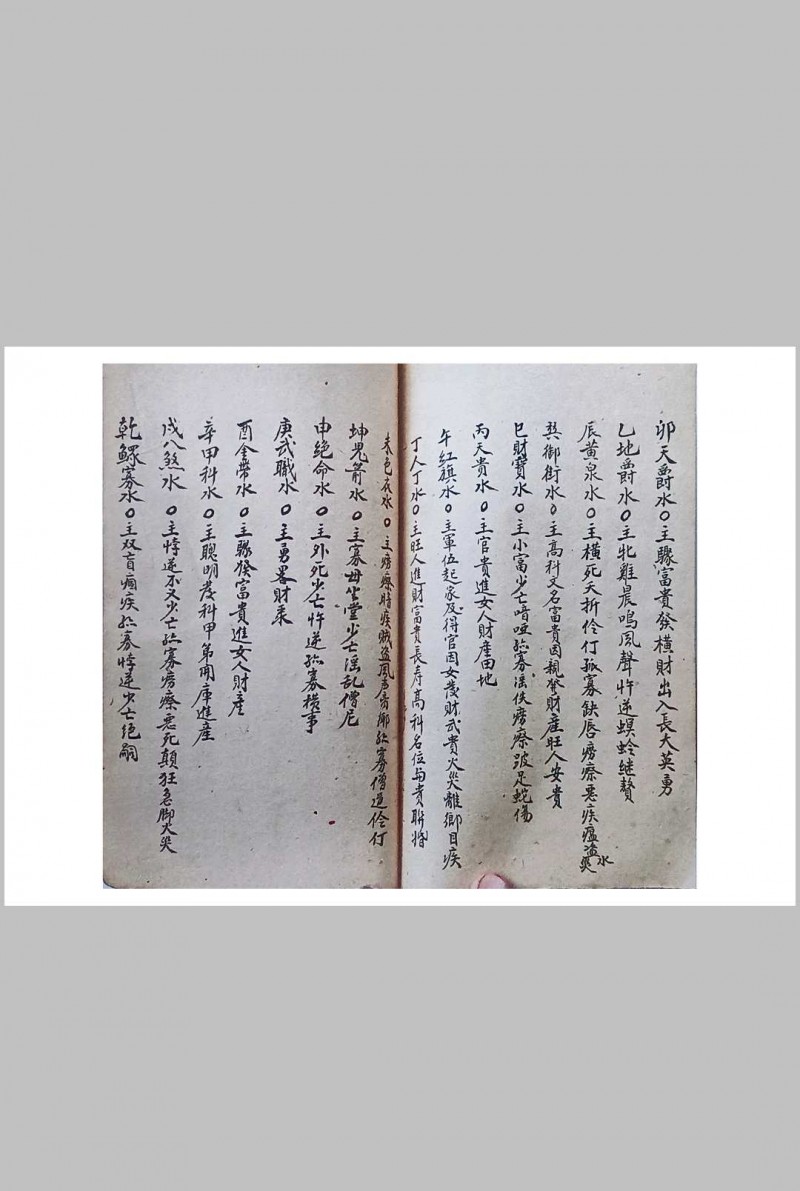 卯天爵水○主驟富貴發橫財出入長大英勇
乙地爵水○主牝雞晨鳴風聲忤逆螟蛉继贅
辰黃泉水○主橫死夭折伶仃孤寡缺唇癆瘵惡疾瘟盜水災
巽御街水○主高科文名富貴因親發財產旺人安貴
巳財寶水○主小富少亡喑啞孤寡淫佚癆瘵跛足蛇傷
丙天貴水○主官貴進女人財產田地
午紅旗水○主軍伍起家及得官因女發财武貴火災離鄉目疾
丁人丁水○主旺人進财富貴長寿高科名位与貴聯婚
未色衣水○主癆瘵時疾贼盗風声孤寡僧道伶仃
坤鬼箭水○主寡母坐堂少亡淫乱僧尼
申绝命水○主外死少亡忤逆孤寡横事
庚武職水○主勇畧財禾
酉金帶水○主驟發富貴進女人财產
辛甲科水○主聰明發科甲第開庫進產
戌八煞水○主悖逆不义少亡孤寡癆瘵惡死顛狂急脚火災
乾鰥寡水○主双盲痼疾孤寡悖逆少亡绝嗣